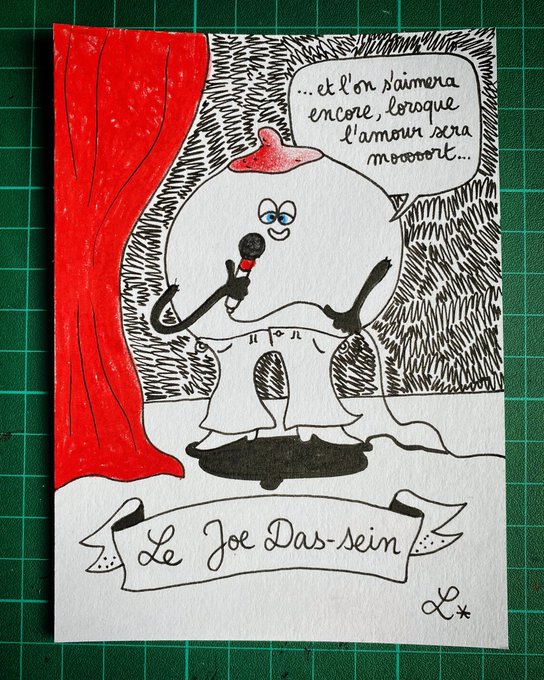 ...et l'on s'aimera
encore, lorsque
l'amour sera
moooort...
Le Joe Das-sein
L*